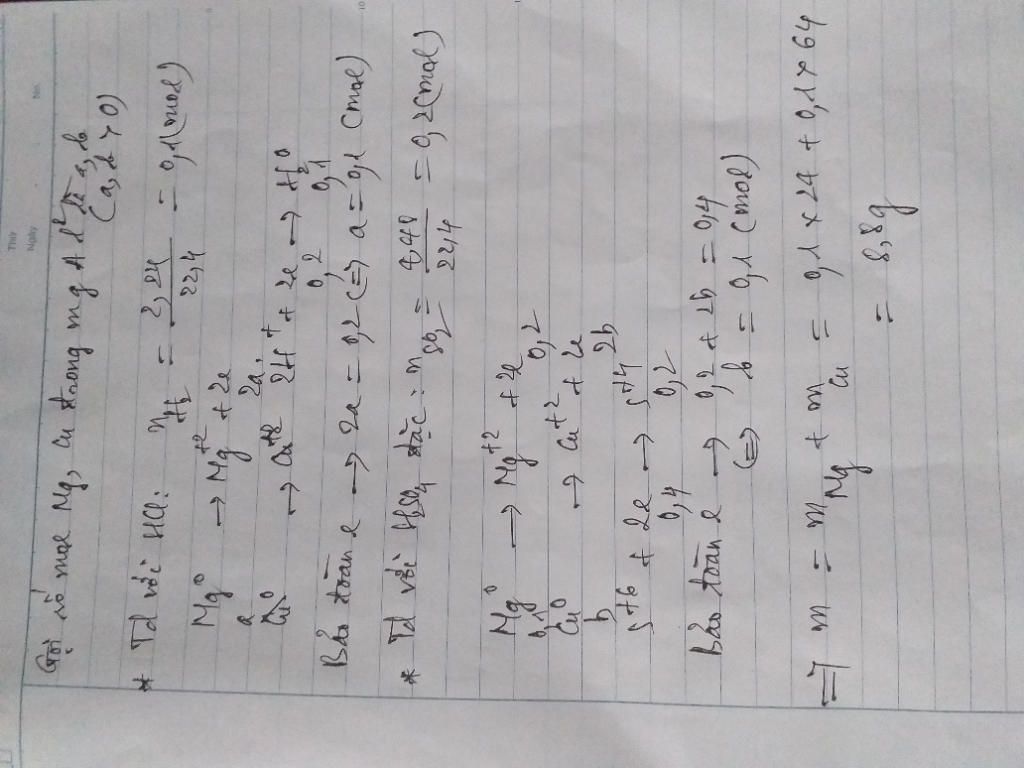 Thứ
Ngày
No.
Gọi số mol Mg, Cu trong m g A lần lượt là a, b
(a, b > 0)
* Td với HCl: n H2 = 2,24 / 22,4 = 0,1 (mol)
Mg⁰ → Mg⁺² + 2e
a 2a
Cu⁰ → Cu⁺² 2H⁺ + 2e → H2⁰
0,2 0,1
Bảo toàn e → 2a = 0,2 <=> a = 0,1 (mol)
* Td với H2SO4 đặc: n SO2 = 4,48 / 22,4 = 0,2 (mol)
Mg⁰ → Mg⁺² + 2e
0,1 0,2
Cu⁰ → Cu⁺² + 2e
b 2b
S⁺⁶ + 2e → S⁺⁴
0,4 0,2
Bảo toàn e → 0,2 + 2b = 0,4
<=> b = 0,1 (mol)
=> m = m Mg + m Cu = 0,1 × 24 + 0,1 × 64
= 8,8g